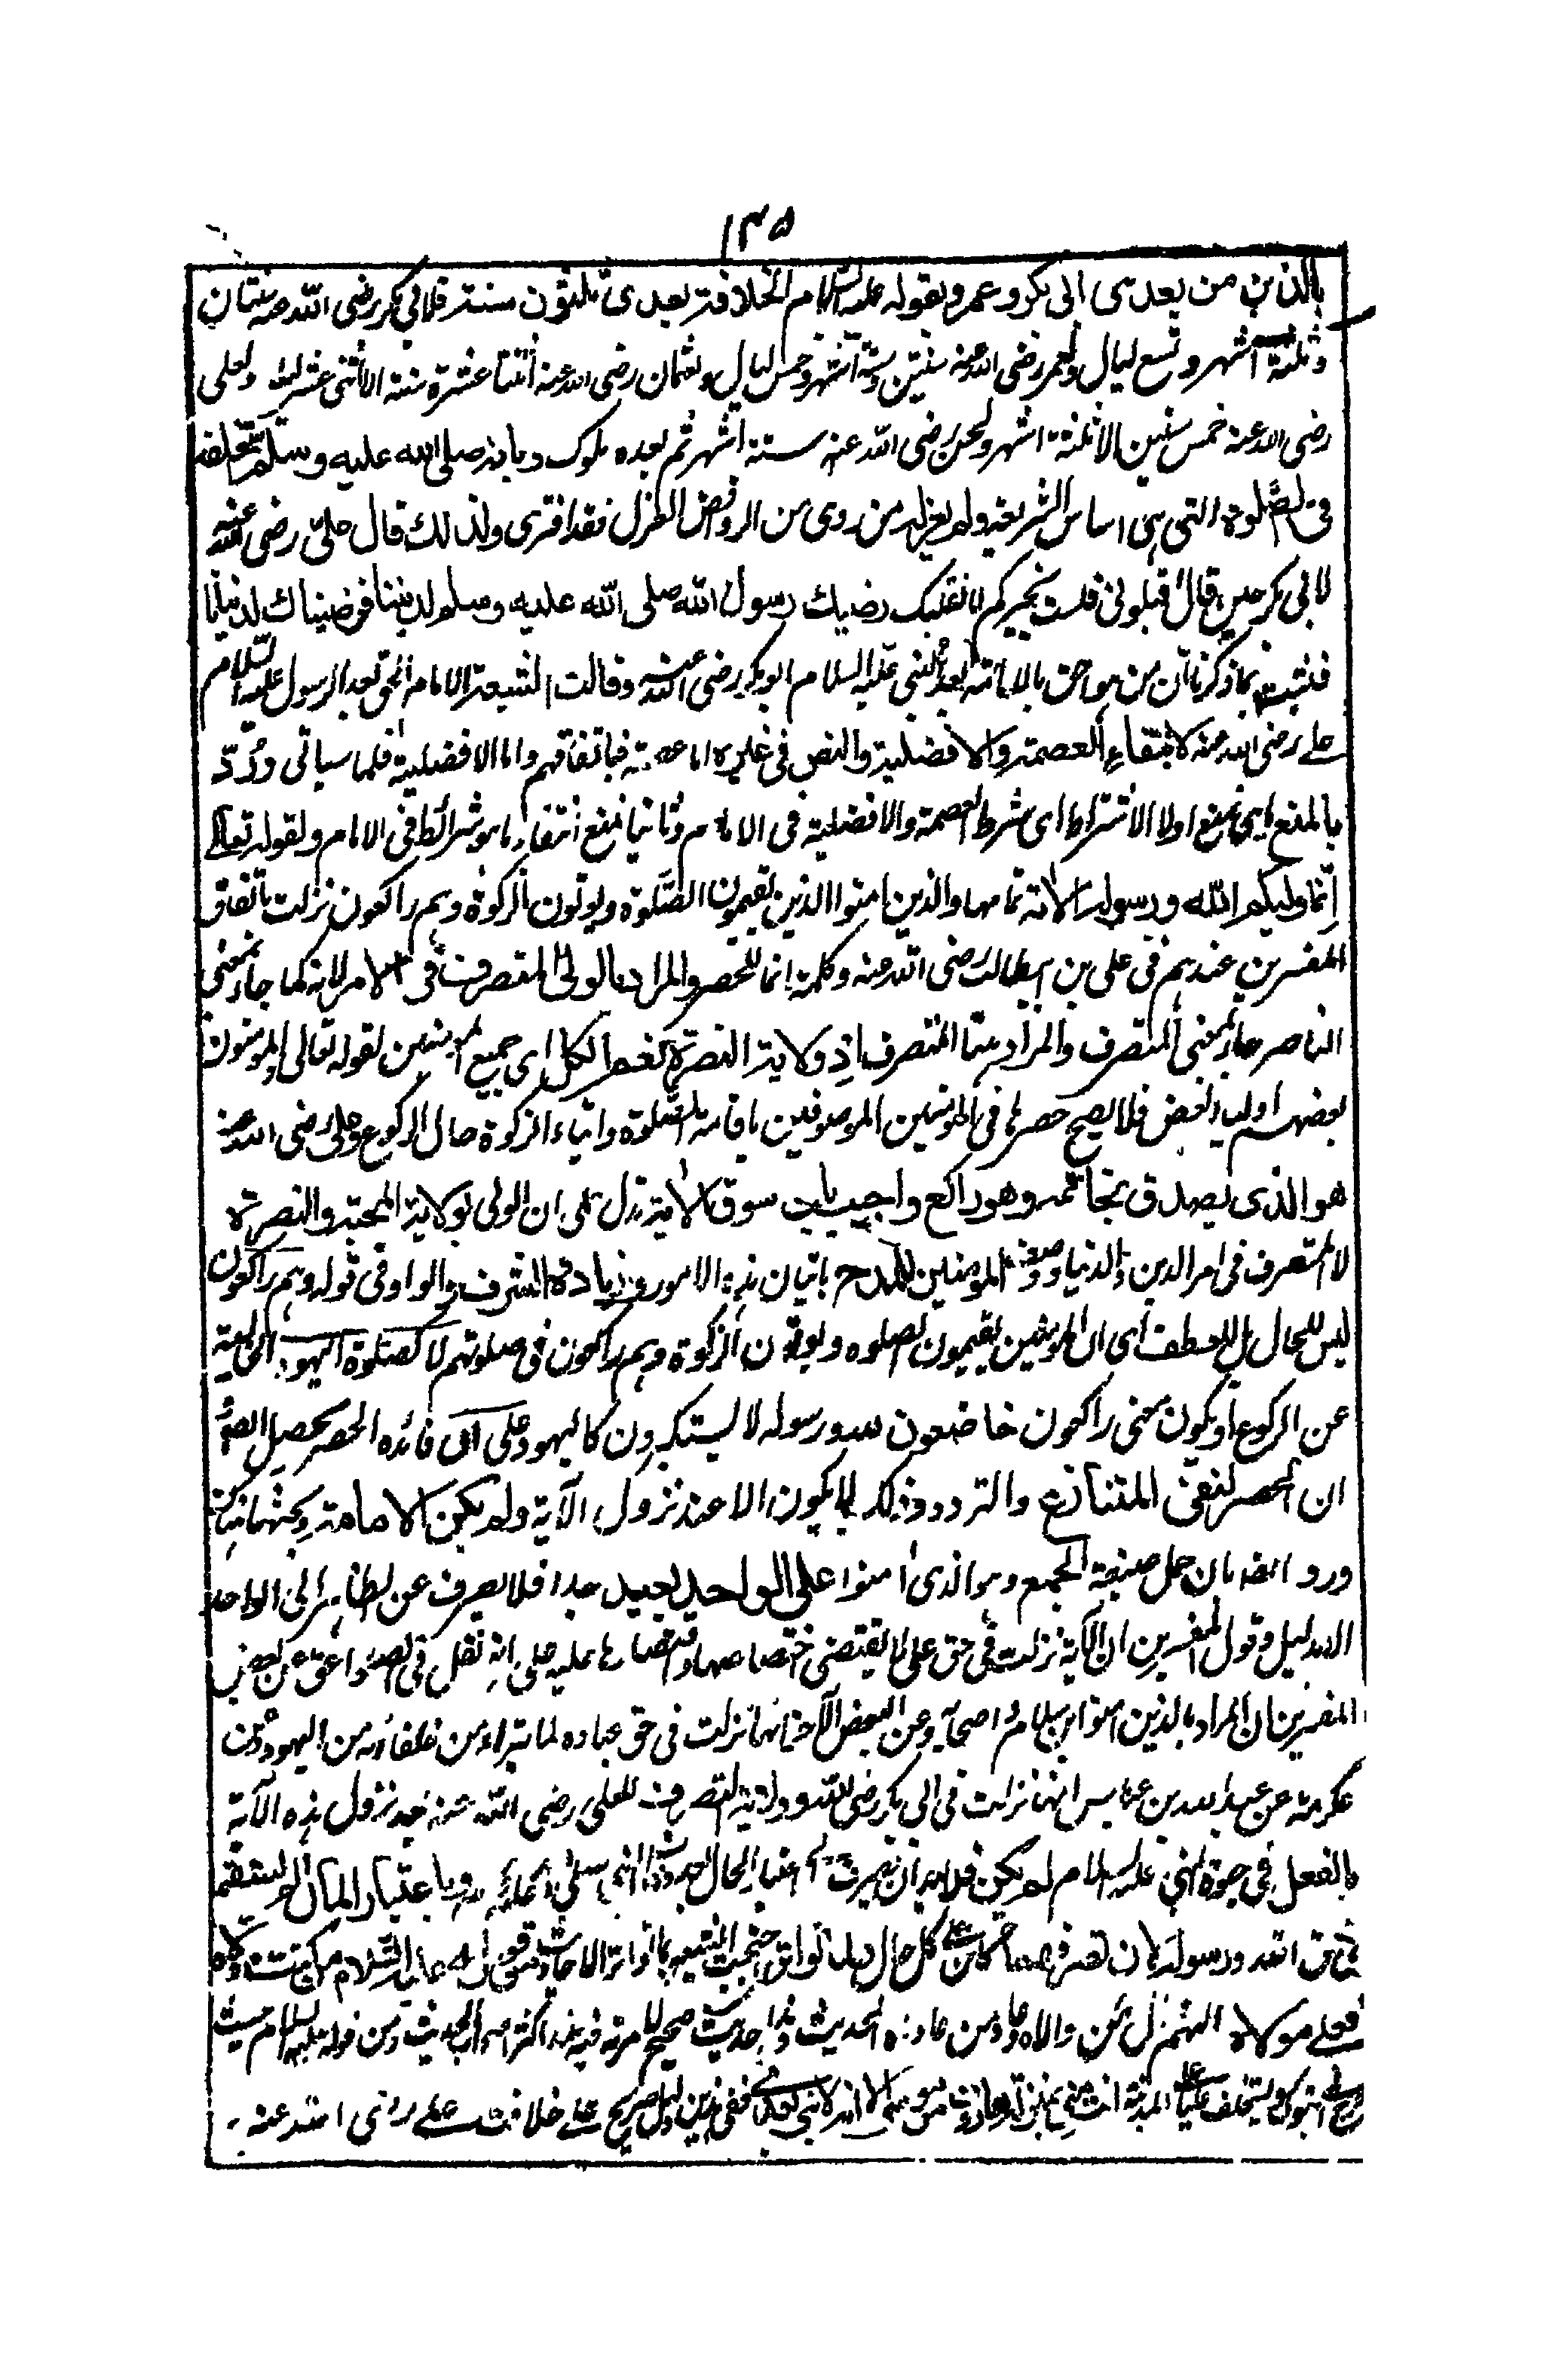 ١٣٥
بالذين من بعدى ابى بكر وعمر وبقوله عليه السلام الخلافة بعدى ثلثون سنة فلابي بكر رضى الله عنه سنتان
وثلثة اشهر وتسع ليال ولعمر رضى الله عنه سنتين وستة اشهر وخمس ليال ولعثمان رضى الله عنه اثنتا عشرة سنة الا اثنى عشر ليلة ولعلى
رضى الله عنه خمس سنين الا ثلثة اشهر ولحسن رضى الله عنه ستة اشهر ثم بعده ملوك وبانه صلى الله عليه وسلم استخلفه
فى الصلوة التى هى اساس الشريعة ولم يعزله ومن روى من الروافض العزل فقد افترى ولذلك قال على رضى عنه
لابى بكر حين قال اقيلونى فلست بخيركم لا نقيلك رضيك رسول الله صلى الله عليه وسلم لديننا فرضيناك لدنيانا
فثبت بما ذكرنا ان من هو احق بالامامة بعد النبى عليه السلام ابو بكر رضى الله عنه وقالت الشيعة الامام الحق بعد الرسول عليه السلام
على رضى الله عنه لانتفاء العصمة والافضلية والنص فى غيره اما عصمته فباتفاقهم واما الافضلية فلما سياتى ورُدّ
بالمنع اى نمنع اولا الاشتراط اى شرط العصمة والافضلية فى الامام وثانيا نمنع انتفاء ما هو شرائط فى الامام ولقوله تعالى
اِنّما وليكم الله ورسوله الاية تمامها والذين امنوا الذين يقيمون الصلوة ويوتون الزكوة وهم راكعون نزلت باتفاق
المفسرين عندهم فى على بن ابيطالب رضى الله عنه وكلمة انما للحصر والمراد بالولى المتصرف فى الامر لانه كما جاء بمعنى
الناصر جاء بمعنى المتصرف والمراد ههنا المتصرف اذ ولاية النصرة تعم الكل اى جميع المومنين لقوله تعالى والمومنون
بعضهم اولياء بعض فلا يصح حصرها فى المومنين الموصوفين باقامة الصلوة وايتاء الزكوة حال الركوع وعلى رضى الله عنه
هو الذى تصدق بخاتمه وهو راكع واجيب بان سوق الاية تدل على ان الولى بولاية المحبة والنصرة
لا المتصرف فى امر الدين والدنيا ووصف المومنين للمدح باتيان هذه الامور وزيادة الشرف والواو فى قوله وهم راكعون
ليس للحال بل للعطف اى ان المومنين يقيمون الصلوه ويوتون الزكوة وهم راكعون فى صلوتهم لا كصلوة اليهود الخالية
عن الركوع او يكون معنى راكعون خاضعون لله ورسوله لا يستكبرون كاليهود على ان فائده الحصر تحصيل
ان الحصر لنفى المتنازع والتردد وذلك لا يكون الا عند نزول الآية ولم يكن الامامة وبحثها
ورد ايضا بان حمل صيغة الجمع وهو الذى امنوا على الواحد بعيد جدا فلا يصرف عن الظاهر الى الواحد
الا بدليل وقول المفسرين ان الآية نزلت فى حق على لا يقتضى اختصاصها واقتصارها عليه على انه نقل فى الصواعق عن بعض
المفسرين ان المراد بالذين امنوا ابن سلام و اصحابه وعن البعض الآخر انها نزلت فى حق عباده لما تبراء من حلفائه من اليهود وعن
عكرمة عن عبد الله بن عباس انها نزلت فى ابى بكر رضى الله و ولاية التصرف للعلى رضى الله عنه عند نزول هذه الآية
بالفعل فى حيوة النبى عليه السلام لم يكن فلا بد ان يصرف الى اعتبار المآل لم يستقم
فى حق الله ورسوله لان تصرفهما كان على كل حال احتجت الشيعة بما تواتر الاحاديث قوله عليه السلام من كنت مولاه
فعلى مولاه اللهم وال من والاه وعاد من عاداه الحديث وهذا حديث صحيح لا مرية فيه اكثر الحديث ومن قوله عليه السلام حيث
خرج الى تبوك واستخلف عليا على المدينة انت منى بمنزلة هارون من موسى الا انه لا نبى بعدى ففى هذين دليل صريح على خلافة على رضى الله عنه